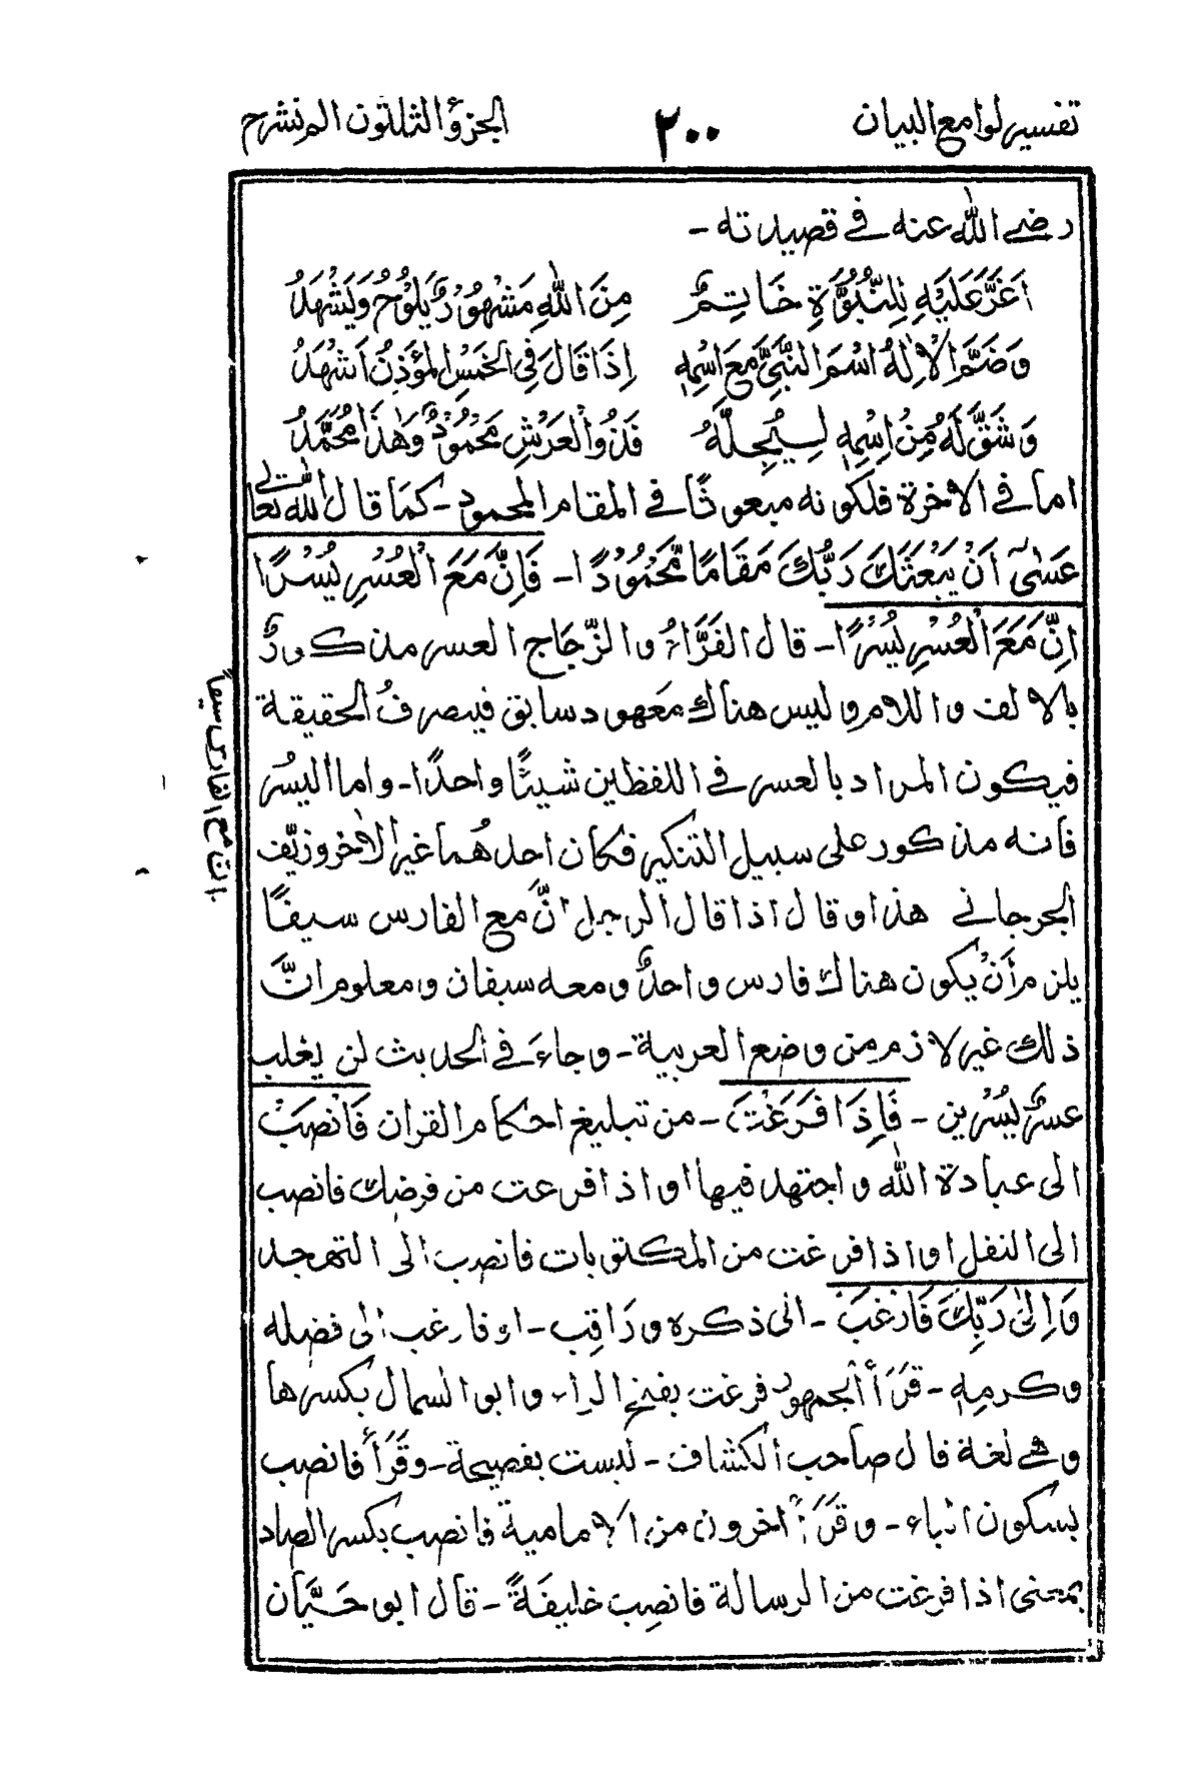 تفسير لوامع البيان ٢٠٠ الجزؤ الثلثون الم نشرح
رضي الله عنه في قصيدته -
اَغَرَّ عَلَيْهِ لِلنُّبُوَّةِ خَاتِمٌ مِنَ اللهِ مَشْهُوْدٌ يَلُوْحُ وَيَشْهَدُ
وَضَمَّ الْاِلٰهُ اسْمَ النَّبِيِّ مَعَ اسْمِهٖ اِذَا قَالَ فِي الْخَمْسِ الْمُؤَذِّنُ اَشْهَدُ
وَشَقَّ لَهٗ مِنْ اِسْمِهٖ لِيُجِلَّهٗ فَذُو الْعَرْشِ مَحْمُوْدٌ وَهٰذَا مُحَمَّدُ
اما في الاخرة فلكونه مبعوثًا في المقام المحمود - كَمَا قال الله تعالى
عَسٰى اَنْ يَبْعَثَكَ رَبُّكَ مَقَامًا مَّحْمُوْدًا - فَاِنَّ مَعَ الْعُسْرِ يُسْرًا
اِنَّ مَعَ الْعُسْرِ يُسْرًا - قال الفَرَّاءُ والزَّجَاج العسر مذكورٌ
بالالف واللام وليس هناك مَعهود سابق فيصرفُ الحقيقة
فيكون المراد بالعسر في اللفظين شيئًا واحدًا - واما اليسُر
فانه مذكور على سبيل التنكير فكان احدهُما غير الاٰخر وزيّف
الجرجاني هذا وقال اذا قال الرجل انَّ مع الفارس سيفًا
يلزم أنْ يكون هناك فارس واحدٌ ومعه سيفان ومعلوم انَّ
ذلك غير لازم مِن وضع العربية - وجاءَ في الحديث لن يغلب
عسرٌ يُسْرين - فَاِذَا فَرَغْتَ - من تبليغ احكام القران فَانْصَبْ
الى عبادة الله واجتهد فيها او اذا فرغت من فرضك فانصب
الى النفل او اذا فرغت من المكتوبات فانصب الى التهجد
وَاِلٰى رَبِّكَ فَارْغَبْ - الى ذكره ورَاقِب - او فارغب الى فضله
وكرمِهٖ - قَرَأ الجمهور فرغت بفتح الراء وابو السمال بكسرها
وهي لغة قال صاحب الكشاف - ليست بفصيحة - وقَرَأ فانصب
بسكون الباء - وقَرَأ اٰخرون من الامامية فانصب بكسر الصاد
بمعنى اذا فرغت من الرسالة فانصِب خليفَةً - قال ابو حَيَّان
ان مع الفارس سيفاً